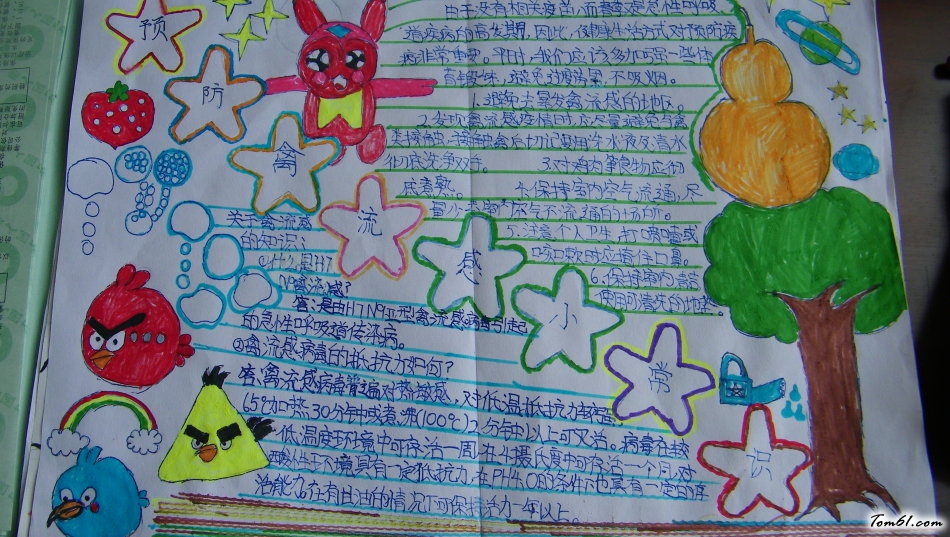 预防禽流感小常识
由于没有相关疫苗,而
道疾病的高发期,因此,健康生活方式对预防疾
病非常重要。平时,我们应该多加强一些体
育锻炼,避免过度劳累,不吸烟。
1.避免去暴发禽流感的地区。
2.发现禽流感疫情时,应尽量避免与禽
类接触,接触禽后切记要用
彻底洗净双手。 3.对鸡肉等食物应彻
底煮熟。 4.保持室内空气流通,尽
量少去室内空气不流通的场所。
5.注意个人卫生,打喷嚏或
咳嗽时应
6.保持室内清洁
使用可清洗的地垫。
关于禽流感
的知识:
①什么是H7
N9禽流感?
答:是由H7N9亚型禽流感病毒引起
的急性呼吸道传染病。
②禽流感病毒的抵抗力如何?
答:禽流感病毒普遍对热敏感,对低温抵抗力较强,
65℃加热30分钟或者煮沸(100℃)2分钟以上可灭活。病毒在较
低温度环境中可存活一周,在4摄氏度中可存活一个月,对
酸性环境具有一定抵抗力,在PH4.0的条件下也具有一定的存
活能力。在有甘油的情况下可保持活力一年以上。
Tom61.com